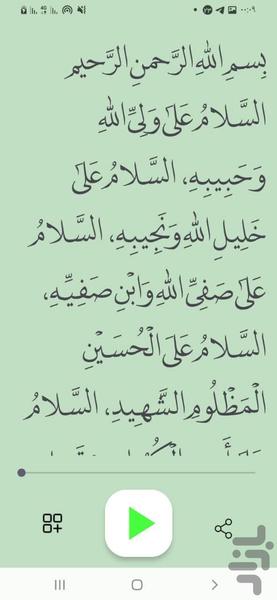 ۰۰:۰۹
بِسمِ اللهِ الرَّحمنِ الرَّحيم
السَّلامُ عَلىٰ وَلِيِّ اللهِ
وَحَبِيبِهِ، السَّلامُ عَلىٰ
خَلِيلِ اللهِ وَنَجِيبِهِ، السَّلامُ
عَلىٰ صَفِيِّ اللهِ وَابْنِ صَفِيِّهِ،
السَّلامُ عَلَى الْحُسَيْنِ
الْمَظْلُومِ الشَّهِيدِ، السَّلامُ
بازار